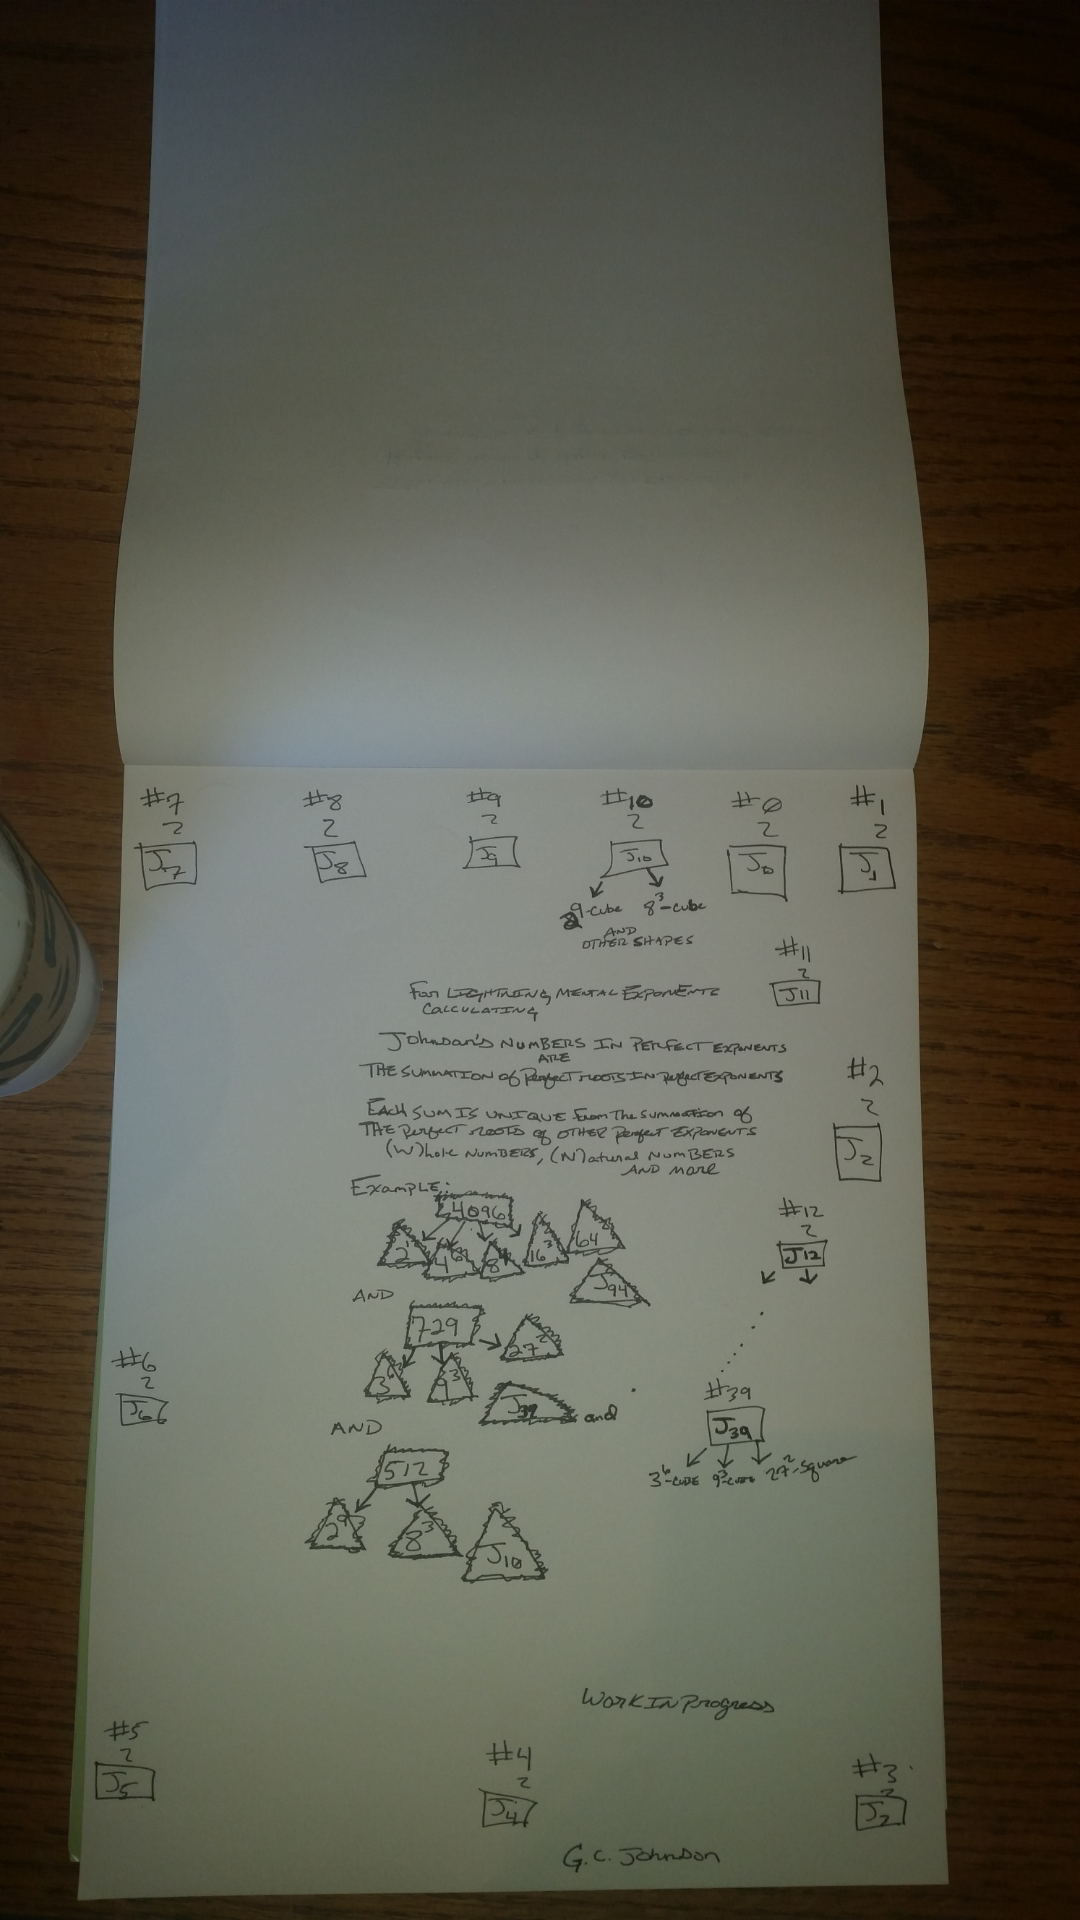 #7 #8 #9 #10 #0 #1
2 2 2 2 2 2
J7 J8 J9 J10 J0 J1
9-cube 8³-cube
AND
OTHER SHAPES
#11
2
J11
For LIGHTNING MENTAL EXPONENTS
CALCULATING
Johnson's NUMBERS IN PERFECT EXPONENTS
ARE
THE SUMMATION of Perfect ROOTS IN Perfect EXPONENTS
#2
2
J2
EACH SUM IS UNIQUE from The summation of
THE Perfect ROOTS of OTHER Perfect EXPONENTS
(W)hole NUMBERS, (N)atural NUMBERS
AND more
Example:
4096
2¹² 4⁶ 8⁴ 16³ 64²
J94
#12
2
J12
AND
729
3⁶ 9³ 27²
J39 and
#6
2
J6
#39
J39
3⁶-CUBE 9³-CUBE 27²-Square
AND
512
2⁹ 8³ J10
WORK IN Progress
#5
2
J5
#4
2
J4
#3
2
J2
G.C. Johnson